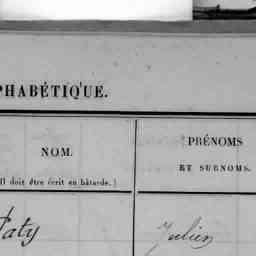 PHABÉTIQUE.
NOM.
Il doit être écrit en bâtarde.)
PRÉNOMS
ET SURNOMS.
Paty
Julien